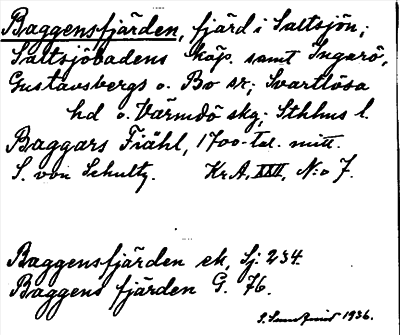 Baggensfjärden, fjärd i Saltsjön;
Saltsjöbadens köp. samt Ingarö,
Gustavsbergs o. Bo sr; Svartlösa
hd o. Värmdö skg; Sthlms l.
Baggars Fiähl, 1700-tal. mitt.
S. von Schultz. Kr.A. XXII, N:o 7.
Baggensfjärden ek, Sj. 234.
Baggens fjärden G. 76.
1936.